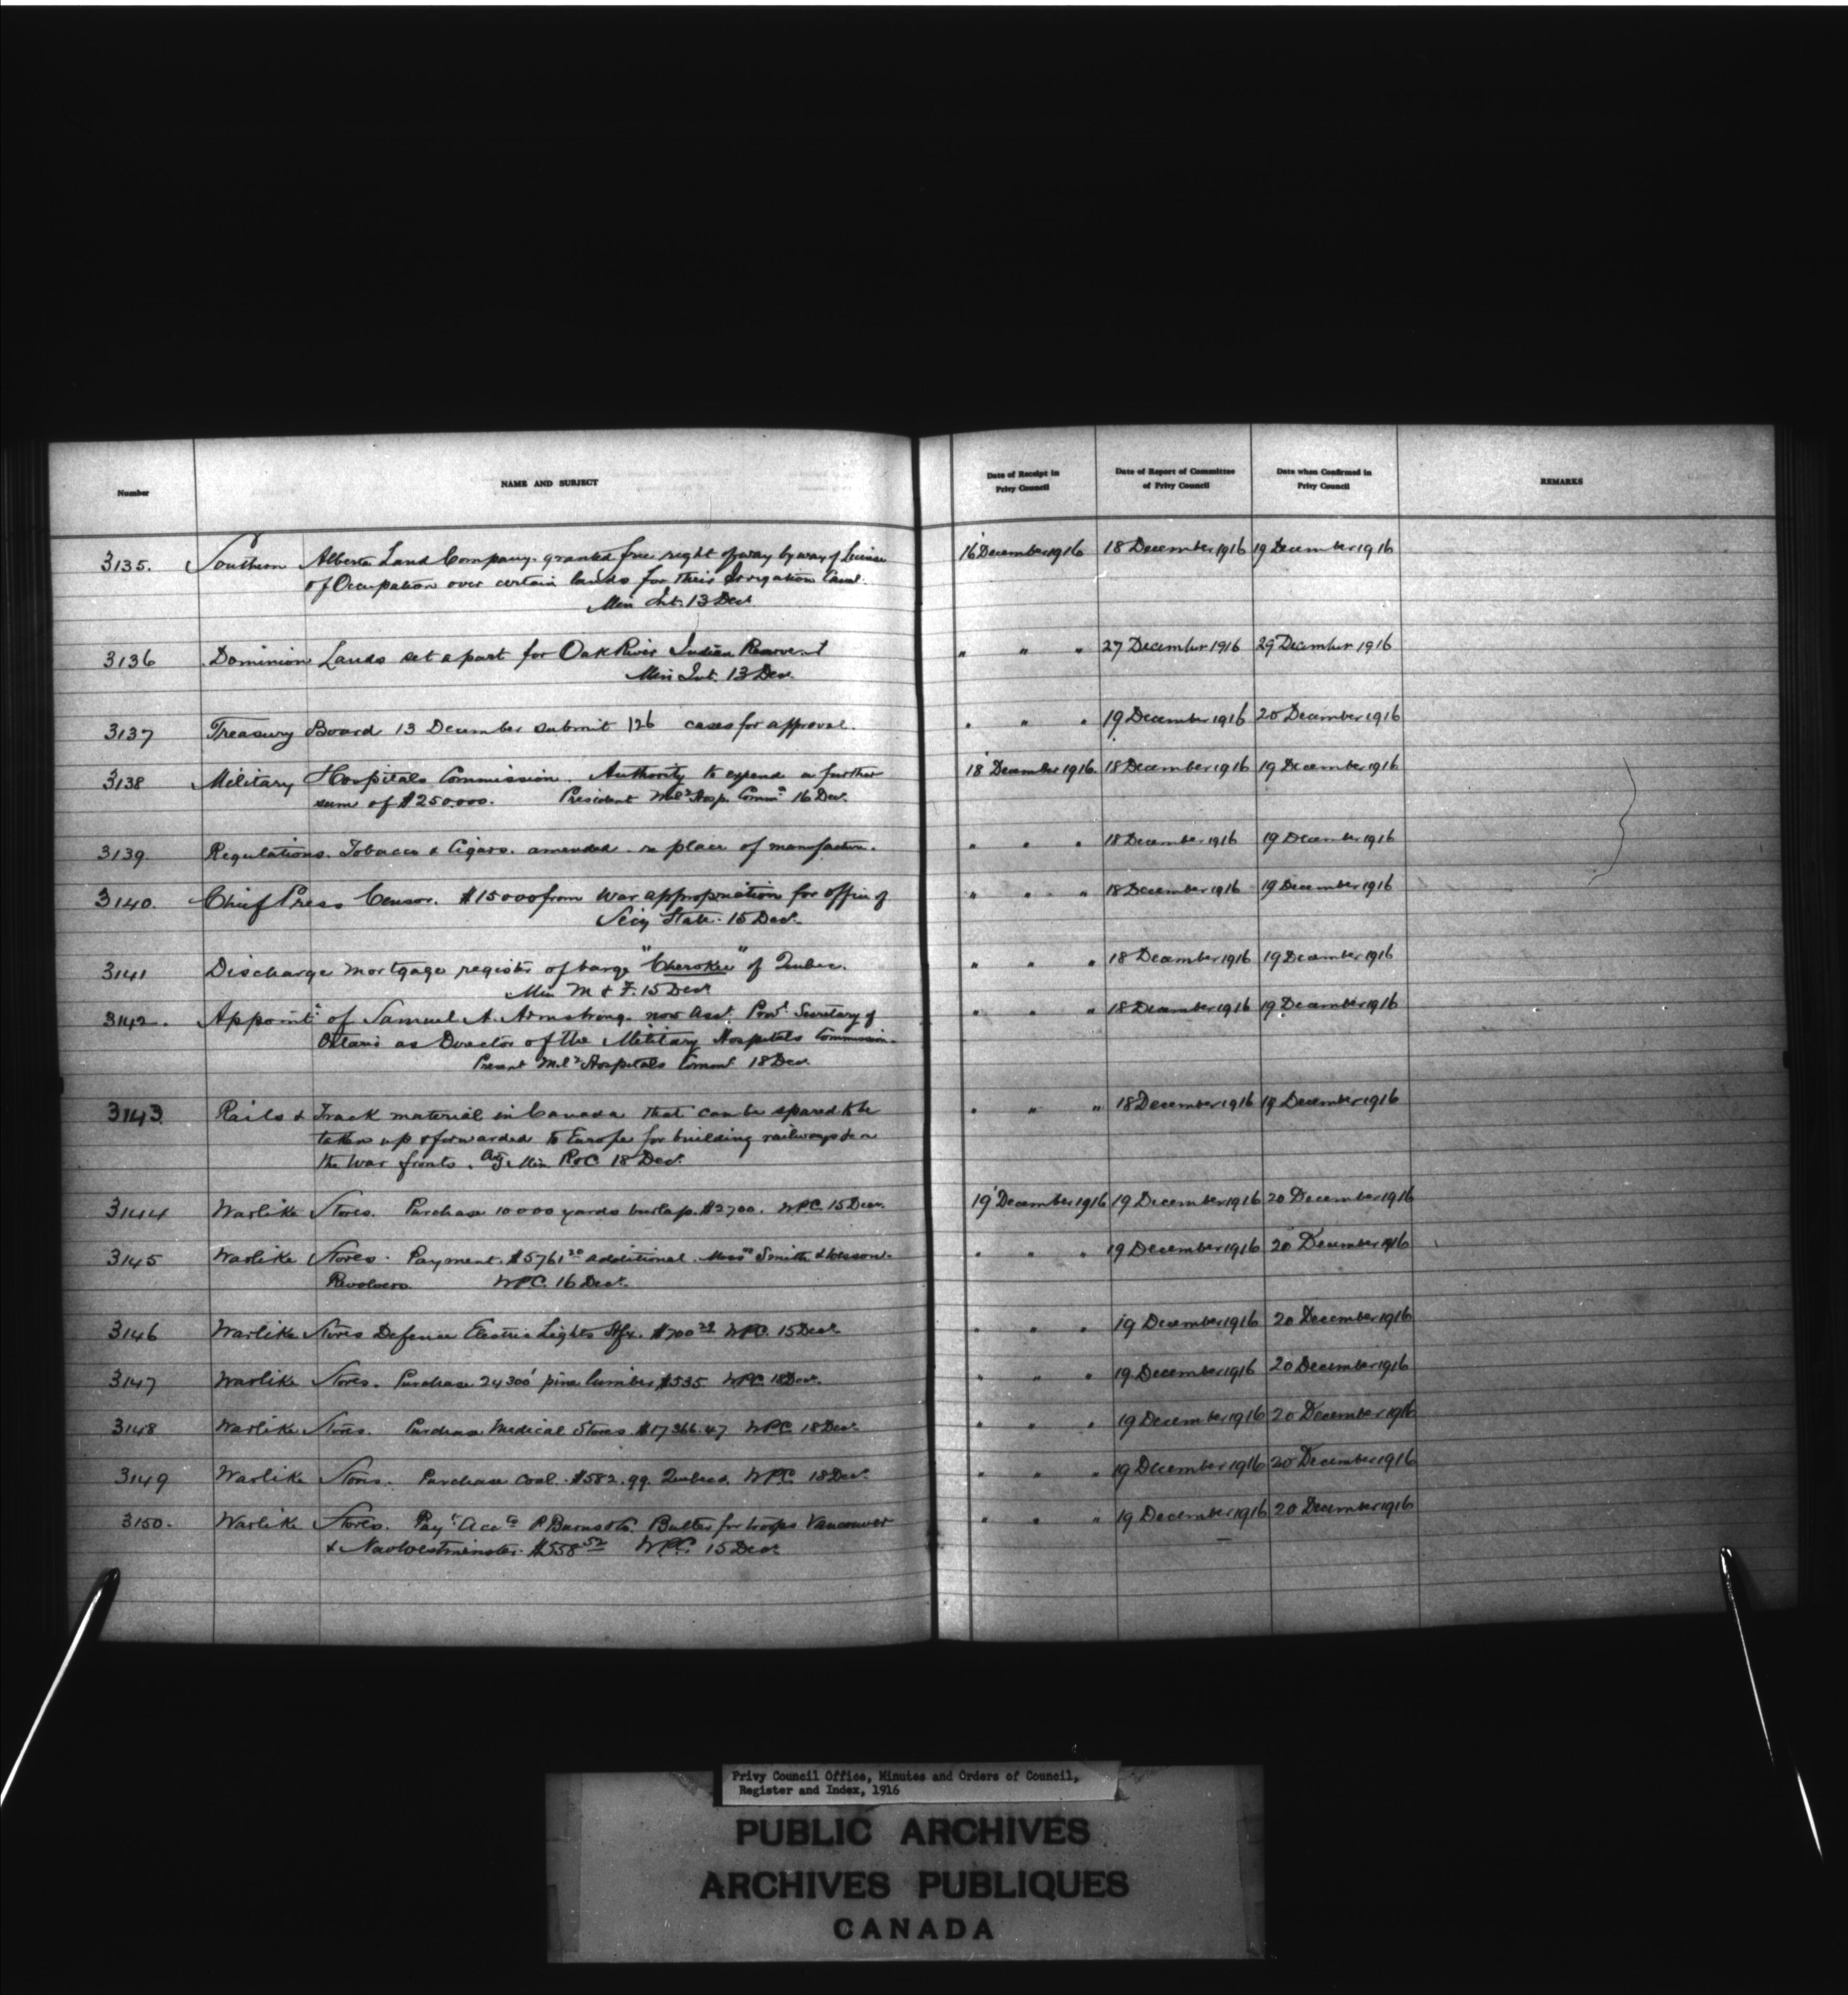 Number
NAME AND SUBJECT
Date of Receipt in
Privy Council
Date of Report of Committee
of Privy Council
Date when Confirmed in
Privy Council
REMARKS
3135. Southern Alberta Land Company. granted free right of way by way of License 16 December 1916 18 December 1916 19 December 1916
of Occupation over certain lands for their Irrigation Canal.
Min Int. 13 Decr
3136 Dominion Lands set apart for Oak River Indian Reserve " " " 27 December 1916 29 December 1916
Min Int. 13 Decr.
3137 Treasury Board 13 December submit 126 cases for approval. " " " 19 December 1916 20 December 1916
3138 Military Hospitals Commission. Authority to expend a further 18 December 1916 18 December 1916 19 December 1916
sum of $250.000. President Mily Hosp. Commn 16 Decr.
3139. Regulations. Tobacco & Cigars. amended re place of manufacture. " " " 18 December 1916 19 December 1916
3140. Chief Press Censor. $15000 from War appropriation for office of " " " 18 December 1916 19 December 1916
Secy State. 15 Decr.
3141 Discharge mortgage register of barge "Cherokee" of Quebec. " " " 18 December 1916 19 December 1916
Min M & F. 15 Decr
3142. Appointt of Samuel A. Armstrong. now asst. Provl Secretary of " " " 18 December 1916 19 December 1916
Ontario as Director of the Military Hospitals Commission.
Presnt Mily Hospitals Commn 18 Decr
3143 Rails & Track material in Canada that can be spared to be " " " 18 December 1916 19 December 1916
taken up & forwarded to Europe for building railways &c
the War fronts. Actg Min R&C 18 Decr.
3144 Warlike Stores. Purchase 10000 yards burlap. $2700. WPC 15 Decr. 19 December 1916 19 December 1916 20 December 1916
3145 Warlike Stores. Payment. $5761.20 additional. Messrs Smith & Wesson. " " " 19 December 1916 20 December 1916
Revolvers WPC. 16 Decr.
3146 Warlike Stores Defence Electric Lights Hfx. $700 WPC. 15 Decr. " " " 19 December 1916 20 December 1916
3147 Warlike Stores. Purchase 24300' pine lumber $535. WPC. 18 Decr. " " " 19 December 1916 20 December 1916
3148 Warlike Stores. Purchase Medical Stores. $17366.47 WPC 18 Decr " " " 19 December 1916 20 December 1916
3149 Warlike Stores. Purchase Coal. $582.99. Quebec. WPC. 18 Decr. " " " 19 December 1916 20 December 1916
3150. Warlike Stores. Payt Acct P Burns & Co. Butter for troops Vancouver " " " 19 December 1916 20 December 1916
& New Westminster. $558.52 WPC. 15 Decr
Privy Council Office, Minutes and Orders of Council,
Register and Index, 1916
PUBLIC ARCHIVES
ARCHIVES PUBLIQUES
CANADA